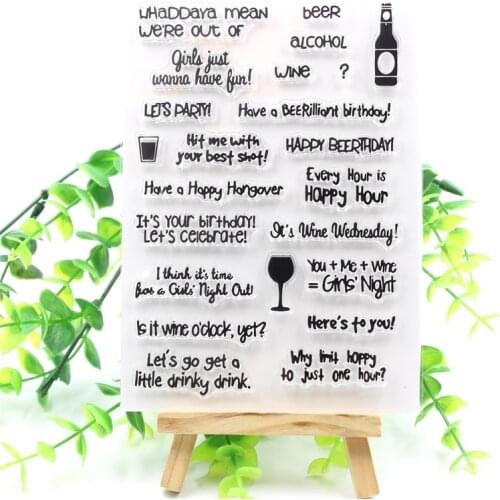 WHADDAYA MEAN
WE'RE OUT OF
BEER
ALCOHOL
WINE ?
Girls just
wanna have fun!
LETS PARTY!
Have a BEERilliant birthday!
Hit me with
your best shot!
HAPPY BEERTHDAY!
Have a Happy Hangover
Every Hour is
Happy Hour
It's your birthday!
Let's celebrate!
It's Wine Wednesday!
I think it's time
for a Girls' Night Out!
You + Me + Wine
= Girls' Night
Is it wine o'clock, yet?
Here's to you!
Let's go get a
little drinky drink.
Why limit happy
to just one hour?